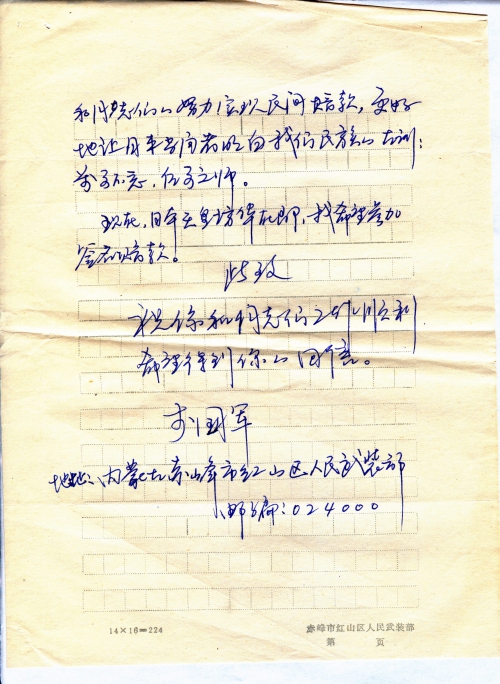 和同志们的努力实现民间赔款,更好
地让日本当局者明白我们民族的古训:
前事不忘,后事之师。
现在,日本天皇访华在即,我希望参加
签名赔款。
此致
祝你和同志们工作顺利
希望得到你的回信。
国军
地址:内蒙古赤峰市红山区人民武装部
邮编:024000
14×16=224
赤峰市红山区人民武装部
第 页